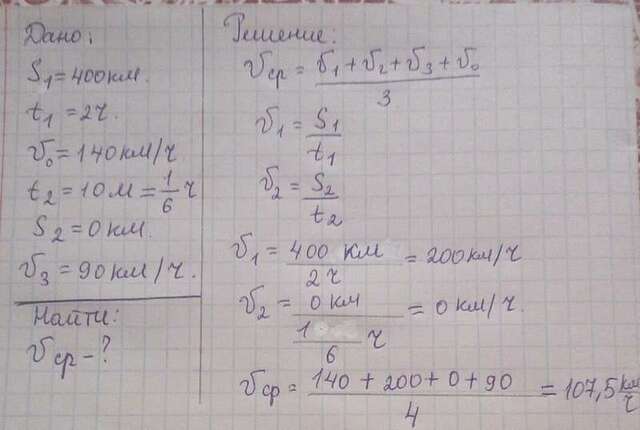 Дано:
S₁ = 400 км.
t₁ = 2 ч.
υ₀ = 140 км/ч
t₂ = 10 м = 1/6 ч
S₂ = 0 км.
υ₃ = 90 км/ч.
Найти:
υср - ?
Решение:
υср = (υ₁ + υ₂ + υ₃ + υ₀)/3
υ₁ = S₁/t₁
υ₂ = S₂/t₂
υ₁ = 400 км/2 ч = 200 км/ч
υ₂ = 0 км/(1/6 ч) = 0 км/ч.
υср = (140 + 200 + 0 + 90)/4 = 107,5 км/ч